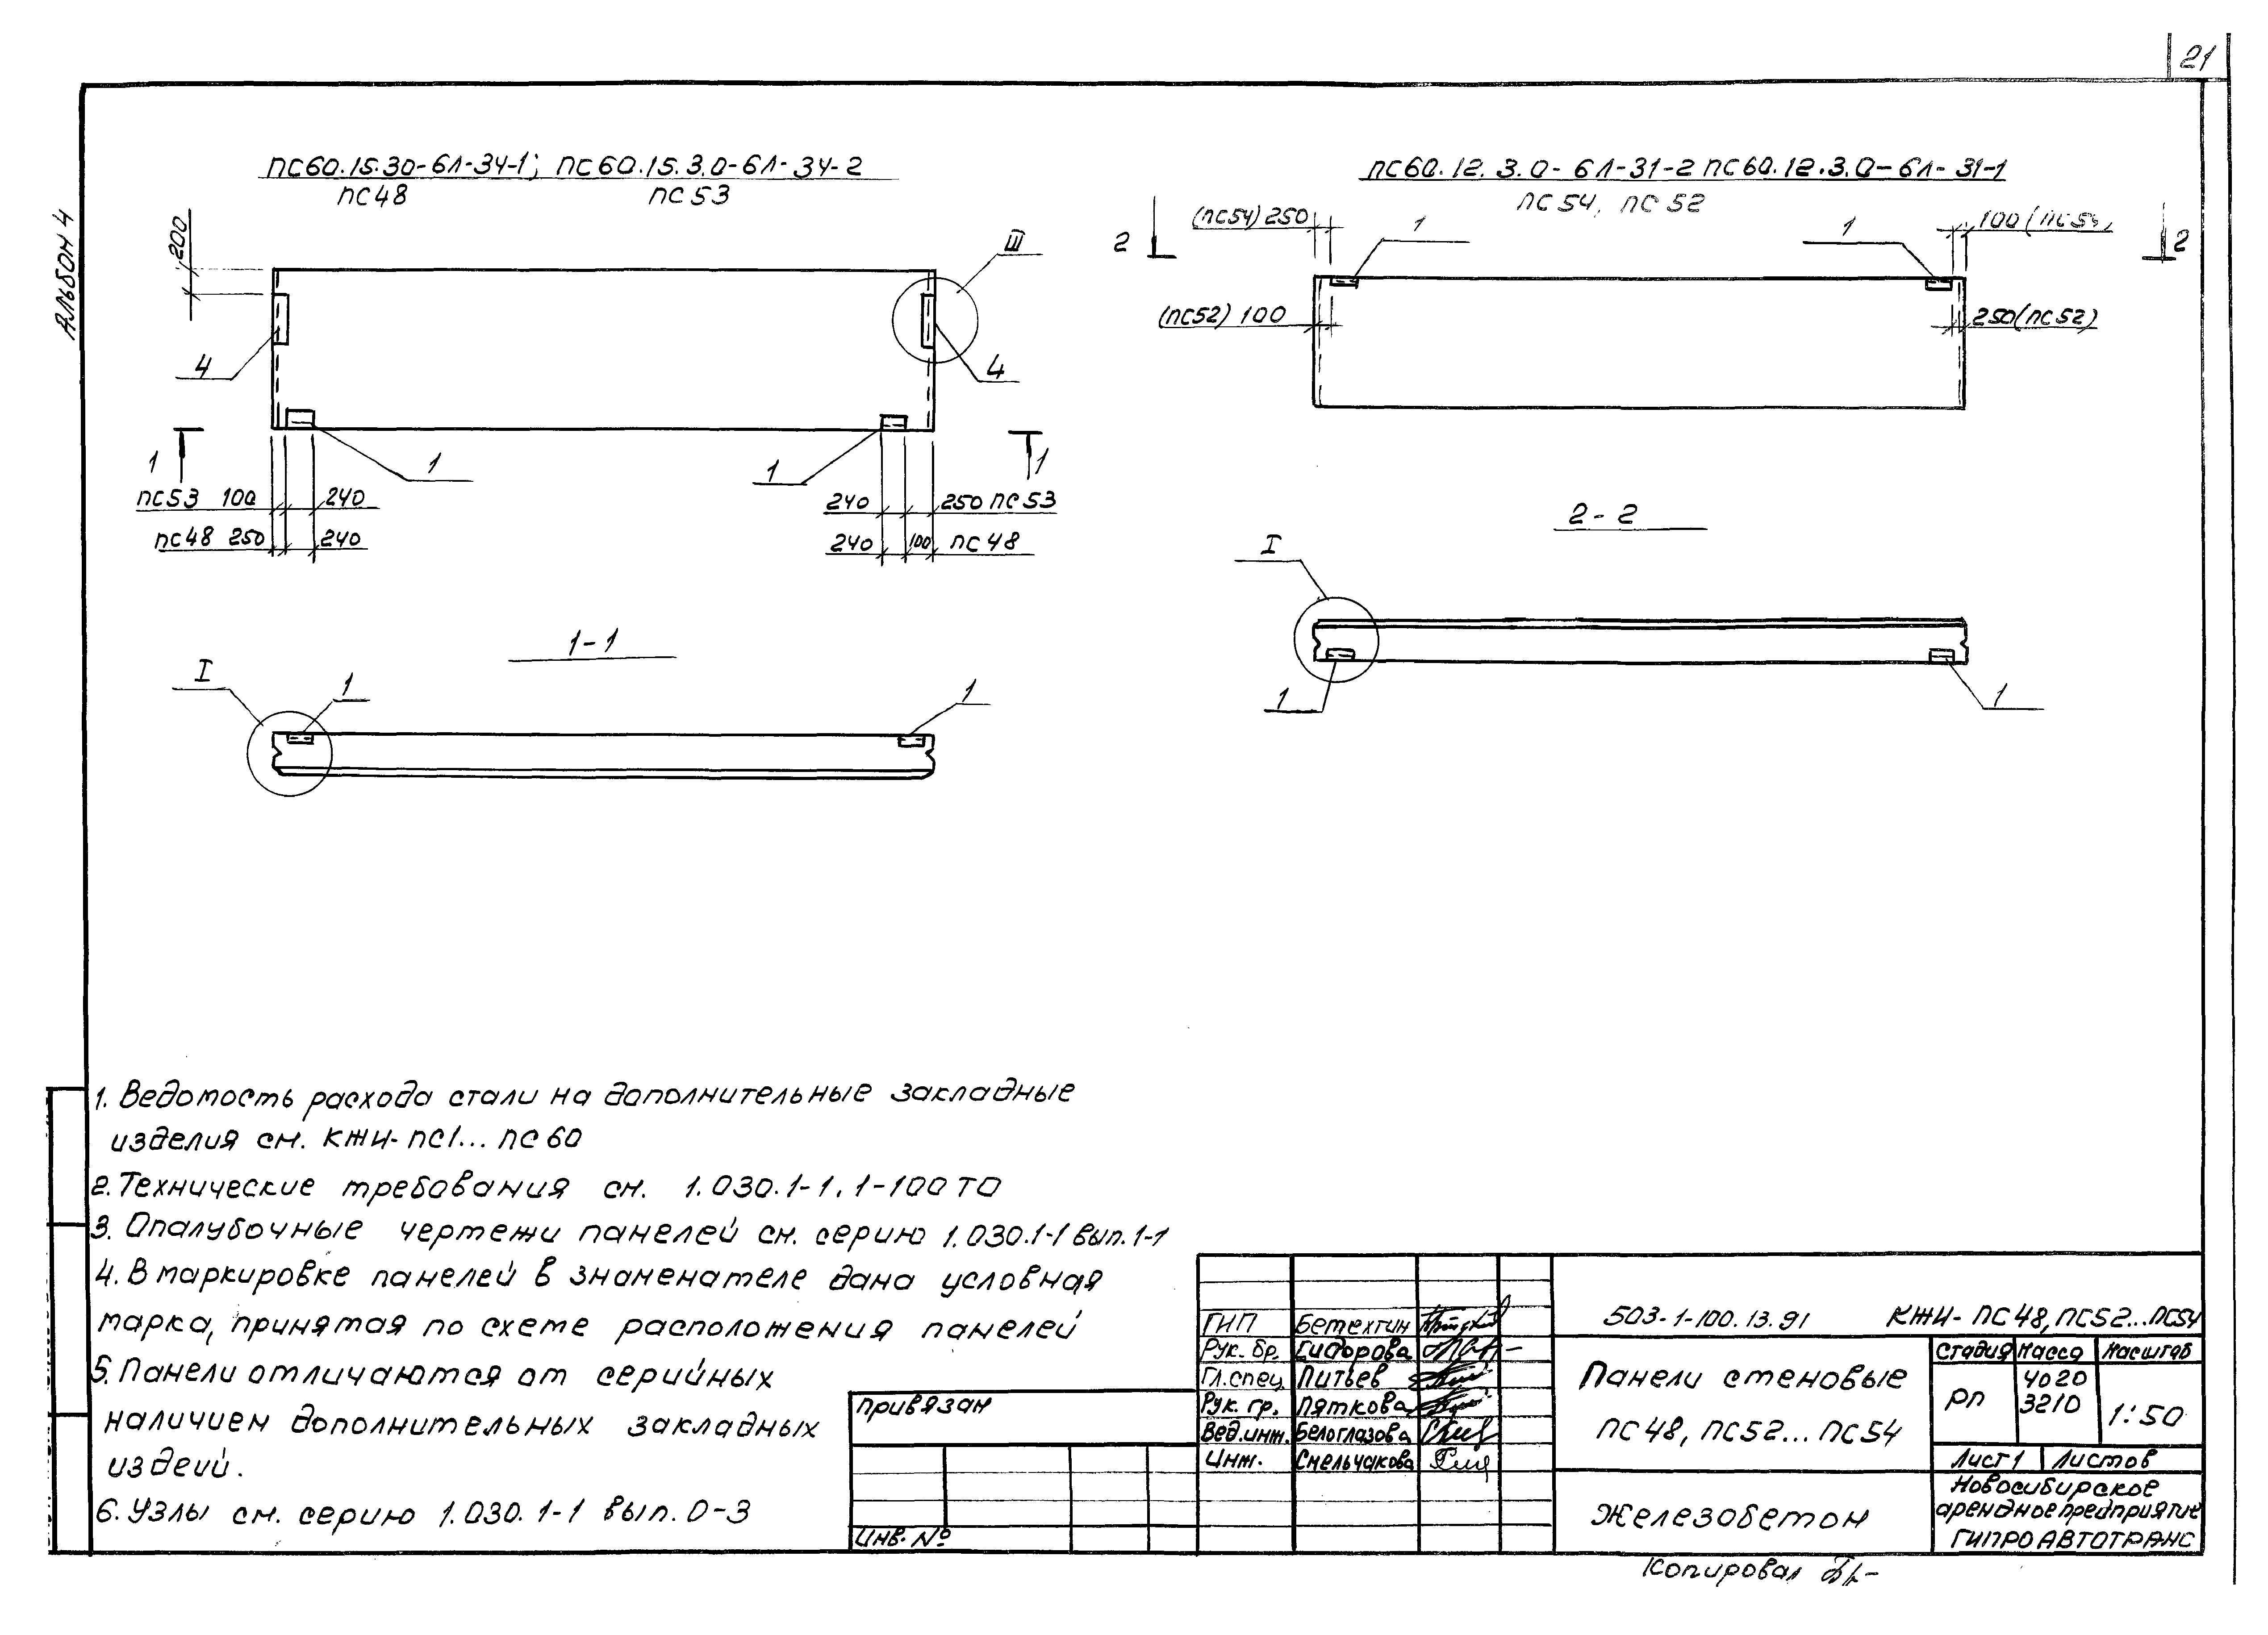 21
Альбом 4
ПС60.15.30-6Л-34-1; ПС60.15.3.0-6Л-34-2
ПС48 ПС53
200
III
4
4
1
1
1
1
ПС53 100 240
240 250 ПС53
ПС48 250 240
240 100 ПС48
1-1
I
1
1
ПС60.12.3.0-6Л-31-2 ПС60.12.3.0-6Л-31-1
ПС54, ПС52
(ПС54) 250
1
1
2
2
(ПС52) 100
250(ПС52)
2-2
I
1
1
1. Ведомость расхода стали на дополнительные закладные
изделия см. КЖИ-ПС1... ПС60
2. Технические требования см. 1.030.1-1.1-100 ТО
3. Опалубочные чертежи панелей см. серию 1.030.1-1 вып. 1-1
4. В маркировке панелей в знаменателе дана условная
марка, принятая по схеме расположения панелей
5. Панели отличаются от серийных
наличием дополнительных закладных
издеий.
6. Узлы см. серию 1.030.1-1 вып. 0-3
Привязан
Инв. №
ГИП Бетехтин
Рук. бр. Сидорова
Гл. спец. Питьев
Рук. гр. Пяткова
Вед. инж. Белоглазова
Инж. Смельчакова
503-1-100.13.91 КЖИ-ПС48, ПС52...ПС54
Панели стеновые
ПС48, ПС52... ПС54
Стадия Масса Масштаб
РП 4020
3210
1:50
Лист 1 Листов
Железобетон
Новосибирское
арендное предприятие
ГИПРОАВТОТРАНС
Копировал